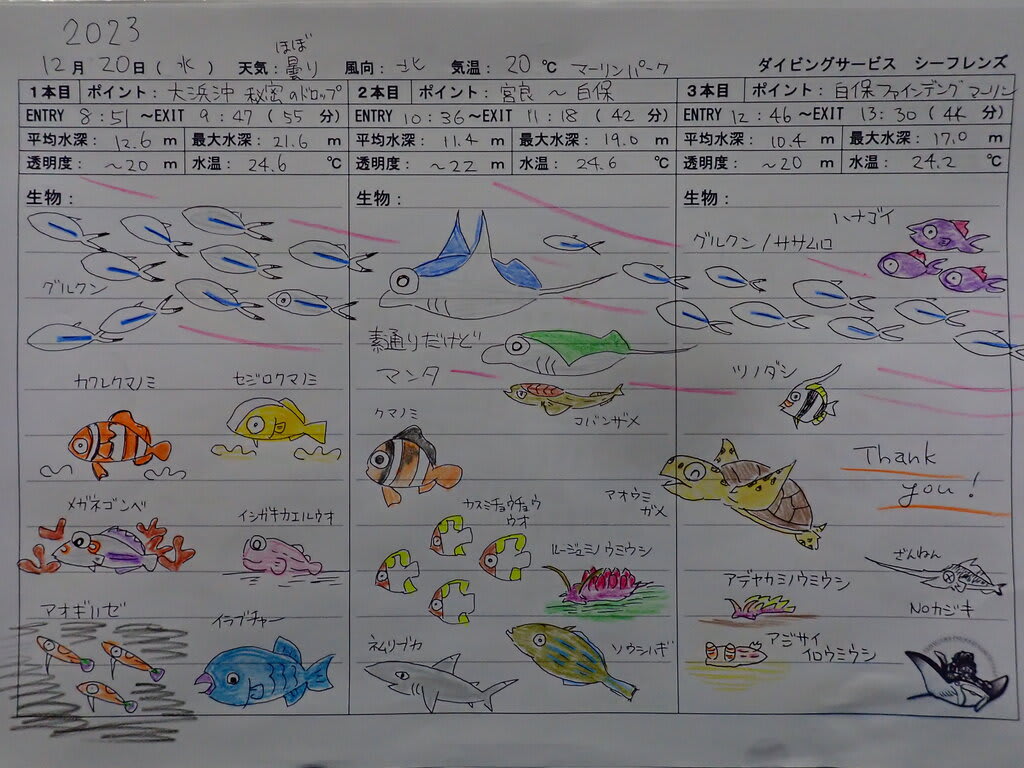 2023
12月 20日(水) 天気:ほぼ曇り 風向:北 気温:20℃ マーリンパーク ダイビングサービス シーフレンズ
1本目 ポイント:大浜沖 秘密のドロップ
ENTRY 8:51 ~EXIT 9:47 (55 分)
平均水深:12.6 m 最大水深:21.6 m
透明度:~20 m 水温:24.6 ℃
生物:
グルクン
カクレクマノミ セジロクマノミ
メガネゴンベ イシガキカエルウオ
アオギハゼ イラブチャー
2本目 ポイント:宮良 ~ 白保
ENTRY 10:36 ~EXIT 11:18 (42 分)
平均水深:11.4 m 最大水深:19.0 m
透明度:~22 m 水温:24.6 ℃
生物:
素通りだけど
マンタ
コバンザメ
クマノミ
カスミチョウチョウ
ウオ
アオウミ
ガメ
ルージュミノウミウシ
ネムリブカ ソウシハギ
3本目 ポイント:白保ファインディングマーリン
ENTRY 12:46 ~EXIT 13:30 (44 分)
平均水深:10.4 m 最大水深:17.0 m
透明度:~20 m 水温:24.2 ℃
生物:
ハナゴイ
グルクン/ササムロ
ツノダシ
Thank
you!
ざんねん
アデヤカミノウミウシ
NOカジキ
アジサイ
イロウミウシ